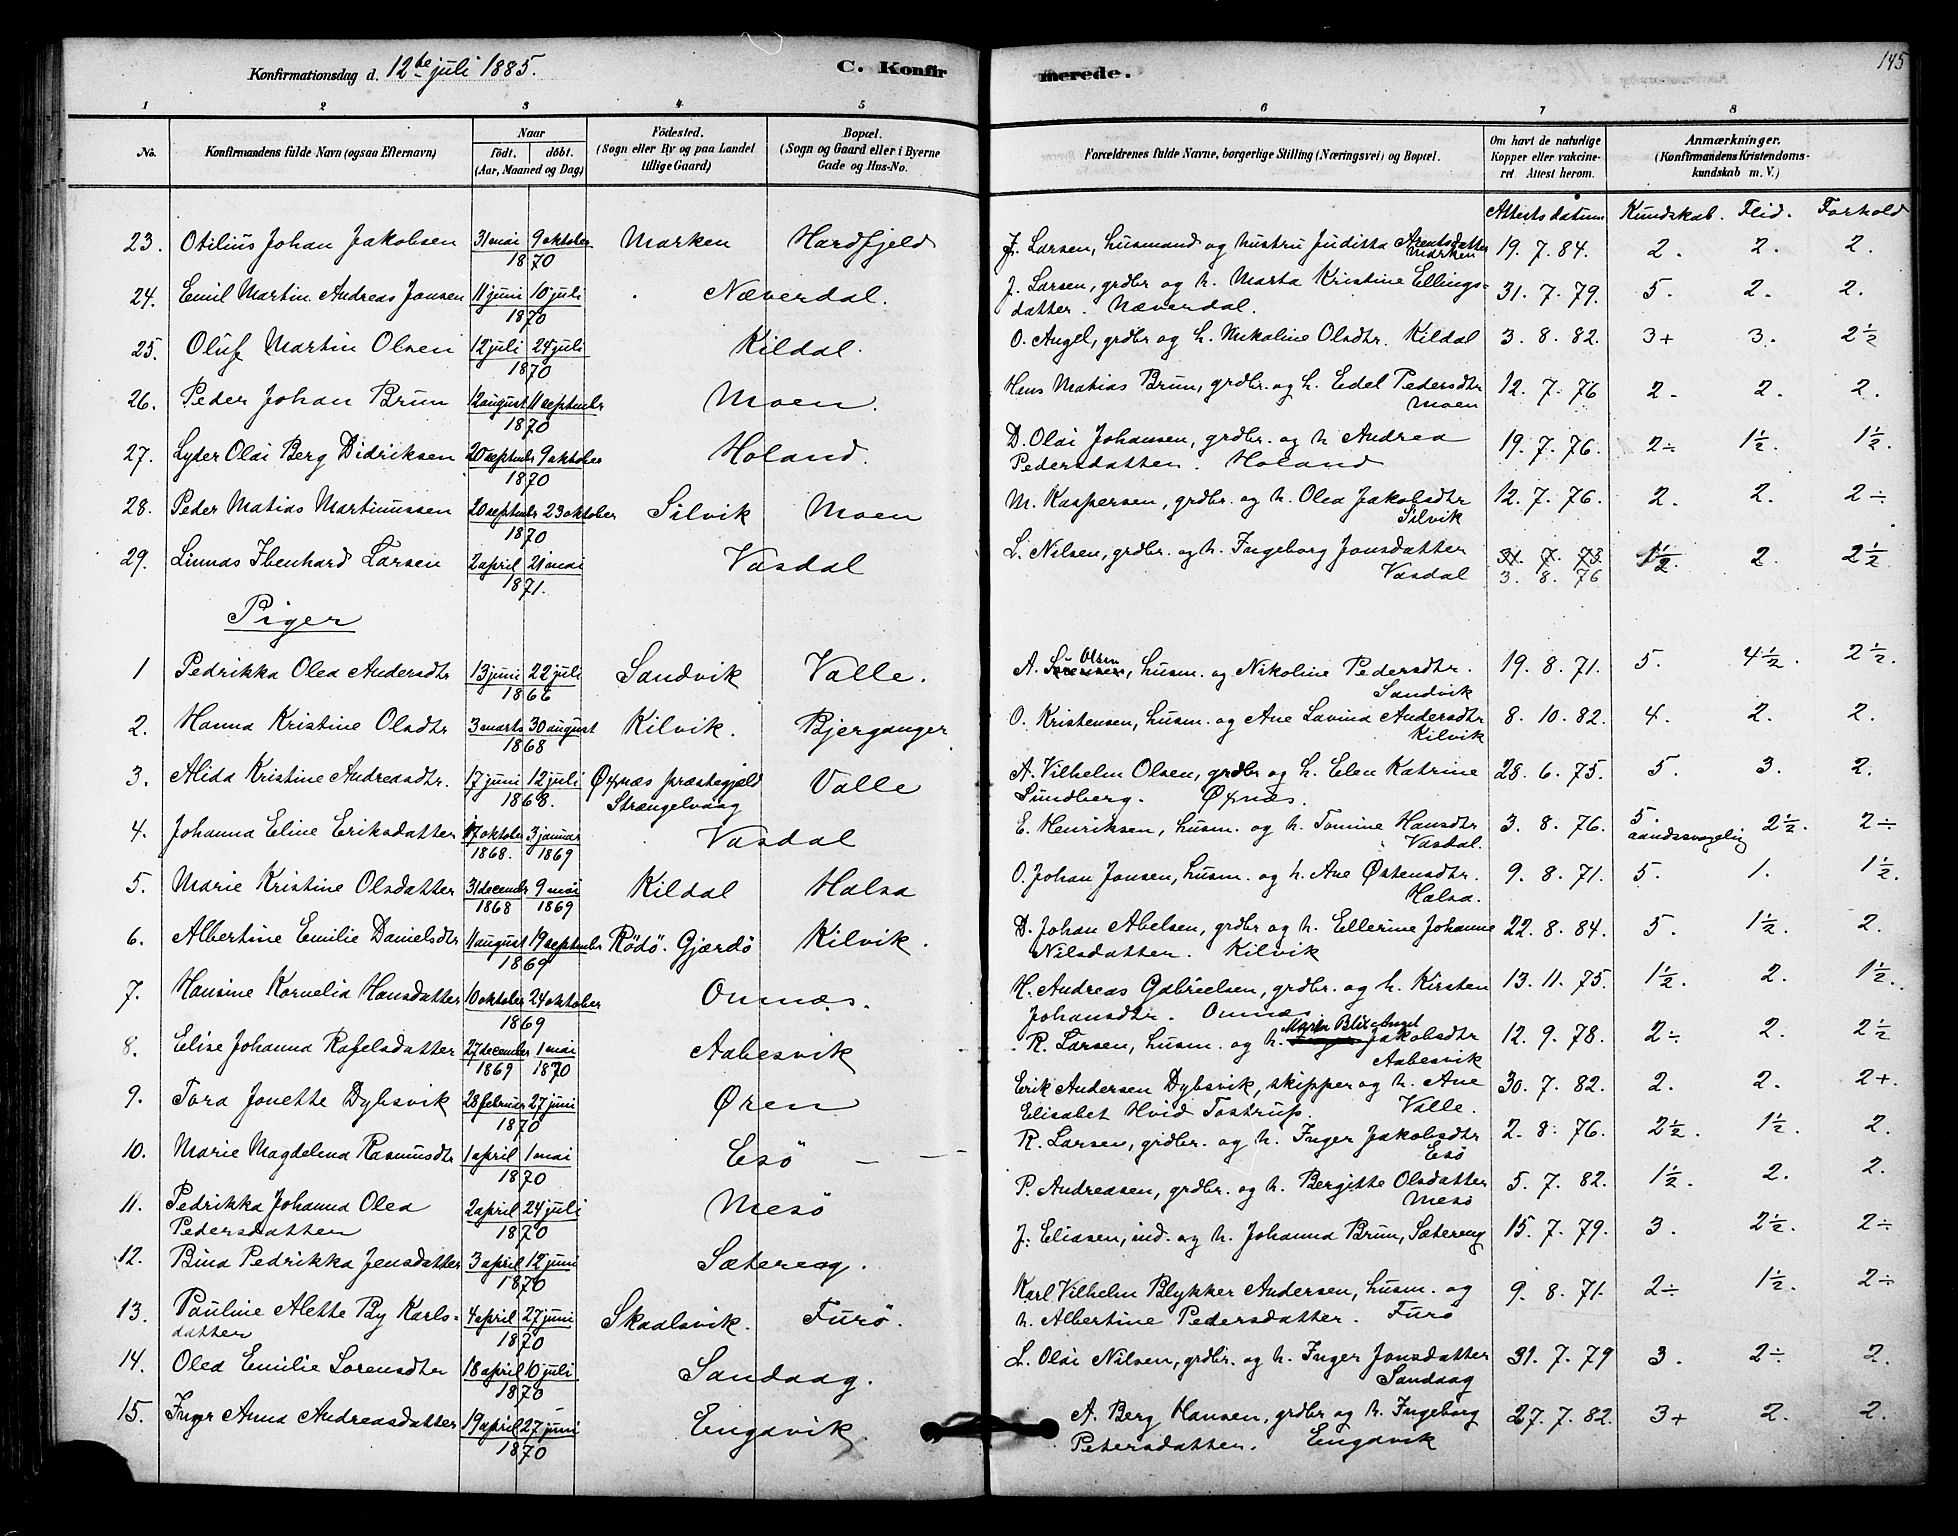 Konfirmationsdag d. 12te juli 1885.
C. Konfirmerede.
145
1 2 3 4 5 6 7 8
No.
Konfirmandens fulde Navn (ogsaa Efternavn)
Naar
födt. döbt.
(Aar, Maaned og Dag)
Födested.
(Sogn eller By og paa Landet
tillige Gaard)
Bopæl.
(Sogn og Gaard eller i Byerne
Gade og Hus-No.
Forældrenes fulde Navne, borgerlige Stilling (Næringsvei) og Bopæl.
Om havt de naturlige
Kopper eller vakcine-
ret Attest herom.
Anmærkninger.
(Konfirmandens Kristendoms-
kundskab m. V.)
Attests datum Kundskab. Flid. Forhold
23. Otilius Johan Jakobsen 31 mai 9 oktober 1870 Marken Hardfjeld J. Larsen, husmand og hustru Juditta Arentsdatter Marken 19. 7. 84. 2. 2. 2.
24. Emil Martin Andreas Jonsen 11 juni 10 juli 1870 Næverdal. J. Larsen, grdbr og h. Marta Kristine Ellings-
datter. Næverdal. 31. 7. 79. 5. 2. 2.
25. Oluf Martin Olsen 12 juli 24 juli 1870 Kildal. O. Angel, grdbr og h. Nikoline Olsdtr. Kildal 3. 8. 82. 3+ 3. 2½
26. Peder Johan Brun 12 august 11 september 1870 Moen. Hans Matias Brun, grdbr. og h. Edel Pedersdtr Moen 12. 7. 76 2. 2. 2.
27. Lyder Olai Berg Didriksen 20 septmbr 9 oktober 1870 Holand. D. Olai Johansen, grdbr. og h Andrea
Pedersdatter. Holand 19. 7. 76. 2÷ 1½. 1½.
28. Peder Matias Martinussen 20 septmbr 23 oktober 1870 Silvik Moen M. Kaspersen, grdbr. og h. Olea Jakobsdtr Silvik 12. 7. 76. 2. 2. 2÷
29. Linnas Ibenhard Larsen 2 april 21 mai 1871. Vasdal L. Nilsen, grdbr. og h. Ingeborg Jonsdatter Vasdal 31. 7. 78. 3. 8. 76 1½ 2. 2½
Piger
1 Pedrikka Olea Andersdtr 13 juni 22 juli 1866 Sandvik Valle. A. Sörensen Olsen, husm. og Nikoline Pedersdtr. Sandvik 19. 8. 71. 5. 4½. 2½.
2. Hanna Kristine Olsdtr 3 marts 30 august 1868 Kilvik. Bjerganger O. Kristensen, husm. og Ane Lavina Andersdtr Kilvik 8. 10. 82. 4. 2. 2.
3. Alida Kristine Andreasdtr. 17 juni 12 juli 1868. Øxnæs præstegjeld
Strængelvaag Valle A. Vilhelm Olsen, grdbr og h. Elen Katrine
Sundberg. Øxnæs. 28. 6. 75. 5. 3. 2.
4. Johanna Eline Eriksdatter 17 oktober 1868. 3 januar 1869 Vasdal E. Henriksen, husm. og h. Tomine Hansdtr Vasdal. 3. 8. 76. 5. aandssvagelig 2½. 2÷
5. Marie Kristine Olsdatter 31 december 1868 9 mai 1869 Kildal Halsa O. Johan Jonsen, husm. og h. Ane Østensdtr. Halsa. 9. 8. 71. 5. 1. 1½.
6. Albertine Emilie Danielsdtr 11 august 19 septmber 1869 Rödö. Gjærdö Kilvik. D. Johan Abelsen, grdbr og h. Ellerine Johanne
Nilsdatter. Kilvik 22. 8. 84. 5. 1½. 2.
7. Hansine Kornelia Hansdatter 10 oktober 24 oktober 1869 Onnæs. H. Andreas Gabrielsen, grdbr. og h. Kirsten
Johansdtr. Onnæs 13. 11. 75. 1½. 2. 1½.
8. Elise Johanna Rafelsdatter 27 december 1869 1 mai 1870 Aabesvik R. Larsen, husm. og h. Inger Marta Blix Angel Jakobsdtr Aabesvik 12. 9. 78. 2÷ 2. 2½
9. Tora Jonette Dybsvik 28 februar 27 juni 1870 Øren Erik Andersen Dybsvik, skipper og h. Ane
Elisabet Hvid Tostrup. Valle. 30. 7. 82. 2. 2. 2+.
10. Marie Magdelena Rasmusdtr 1 april 1 mai 1870 Esö R. Larsen, grdbr. og h. Inger Jakobsdtr Esö 2. 8. 76. 2½. 1½. 2.
11. Pedrikka Johanna Olea
Pedersdatter 2 april 24 juli 1870 Mesö P. Andreasen, grdbr. og h. Bergitte Olsdatter Mesö 5. 7. 82. 1½. 2. 2.
12. Bina Pedrikka Jensdatter 3 april 12 juni 1870 Sætereng. J. Eliasen, ind. og h. Johanna Brun, Sætereng 15. 7. 79. 3. 2½. 2÷
13. Pauline Alette By Karls-
datter 4 april 27 juni 1870 Skaalsvik. Furö. Karl Vilhelm Blykker Andersen, husm. og
h. Albertine Pedersdatter. Furö 9. 8. 71. 2÷ 1½. 2÷
14. Olea Emilie Lorensdtr 18 april 10 juli 1870 Sandaag. L. Olai Nilsen, grdbr. og h. Inger Jonsdatter Sandaag 31. 7. 79 3. 2÷ 2.
15. Inger Anna Andreasdatter 19 april 27 juni 1870 Engavik A. Berg Hansen, grdbr og h. Ingeborg
Petersdatter. Engavik 27. 7. 82. 3+ 2. 2.